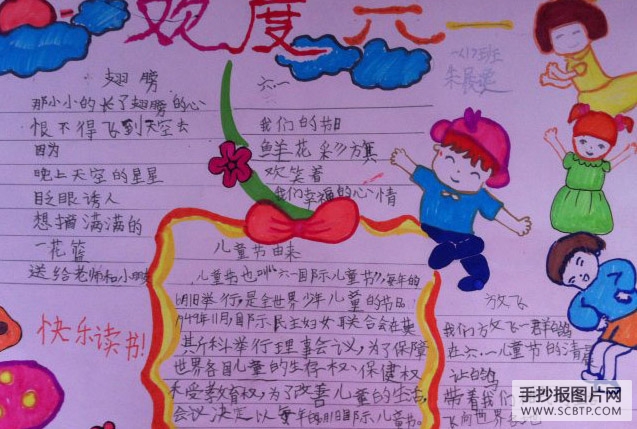 欢度六一
一(1)班
翅膀
那小小的长了翅膀的心
恨不得飞到天空去
因为
晚上天空的星星
眨眼诱人
想摘满满的
一花篮
送给老师和小朋友
快乐读书!
六.一
我们的节日
鲜花彩旗
欢笑着
我们幸福的心情
儿童节由来
儿童节也叫“六一国际儿童节”,每年的
6月1日举行,是全世界少年儿童的节日
1949年11月,国际民主妇女联合会在莫
斯科举行理事会议,为了保障
世界各国儿童的生存权、保健权
和受教育权,为了改善儿童的生活,
会议决定以每年的6月1日国际儿童节.
放飞
我们放飞一群白鸽
在六.一儿童节的清晨
让白鸽
带着我们
飞向世界
手抄报图片网
WWW.SCBTP.COM